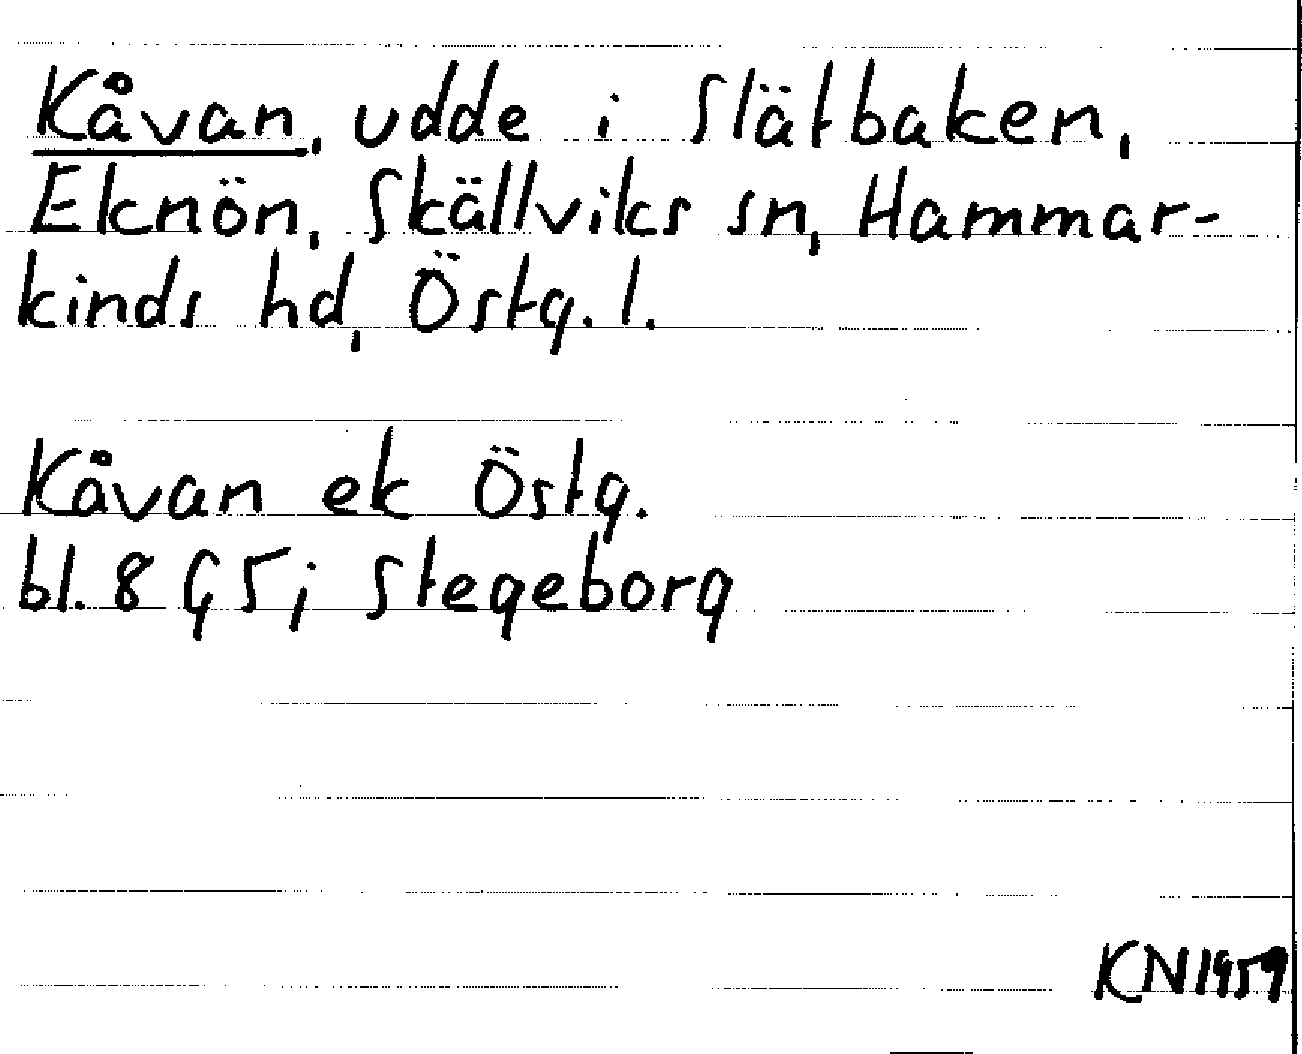 Kåvan, udde i Slätbaken,
Eknön, Skällviks sn, Hammar-
kinds hd, Östg. l.
Kåvan ek Östg.
bl. 8 G5; Stegeborg
KN 1959